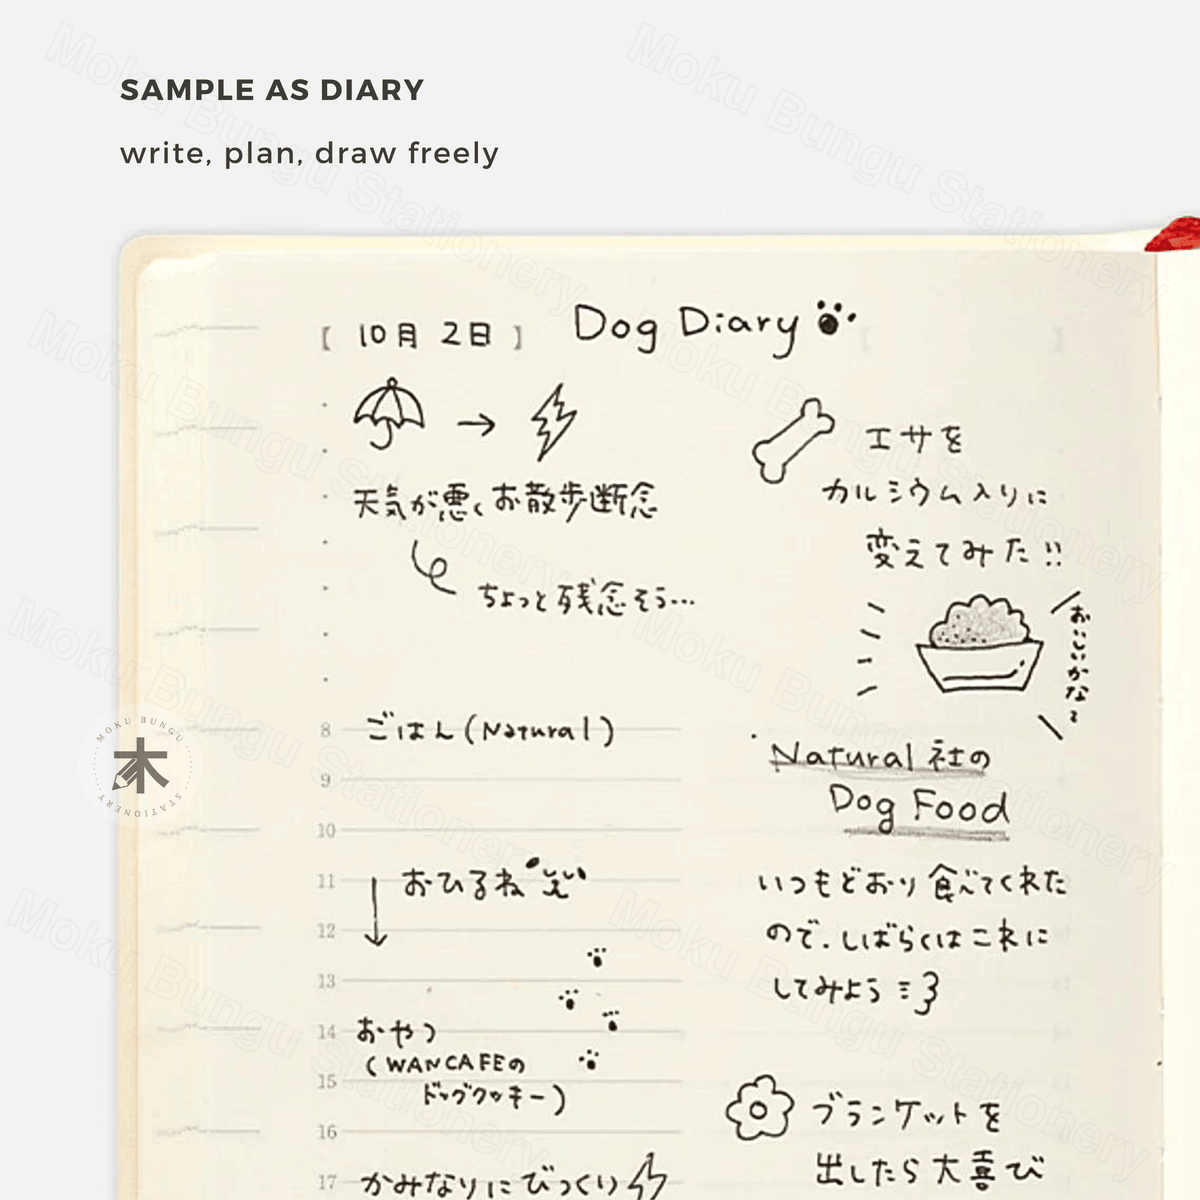 SAMPLE AS DIARY
write, plan, draw freely
【 10月 2日 】
Dog Diary
天気が悪くお散歩断念
ちょっと残念そう…
エサを
カルシウム入りに
変えてみた!!
おいしいかな〜
8 ごはん(Natural)
9
10
11 おひるね
12
13
14 おやつ
(WANCAFEの
15 ドッグクッキー)
16
17 かみなりにびっくり
Natural 社の
Dog Food
いつもどおり食べてくれた
ので、しばらくはこれに
してみよう
ブランケットを
出したら大喜び
木
MOKU BUNGU
STATIONERY
Moku Bungu Stationery
Moku Bungu Stationery
Moku Bungu Stationery
Moku Bungu Stationery
Moku Bungu Stationery
Moku Bungu Stationery
Moku Bungu Stationery
Moku Bungu Stationery